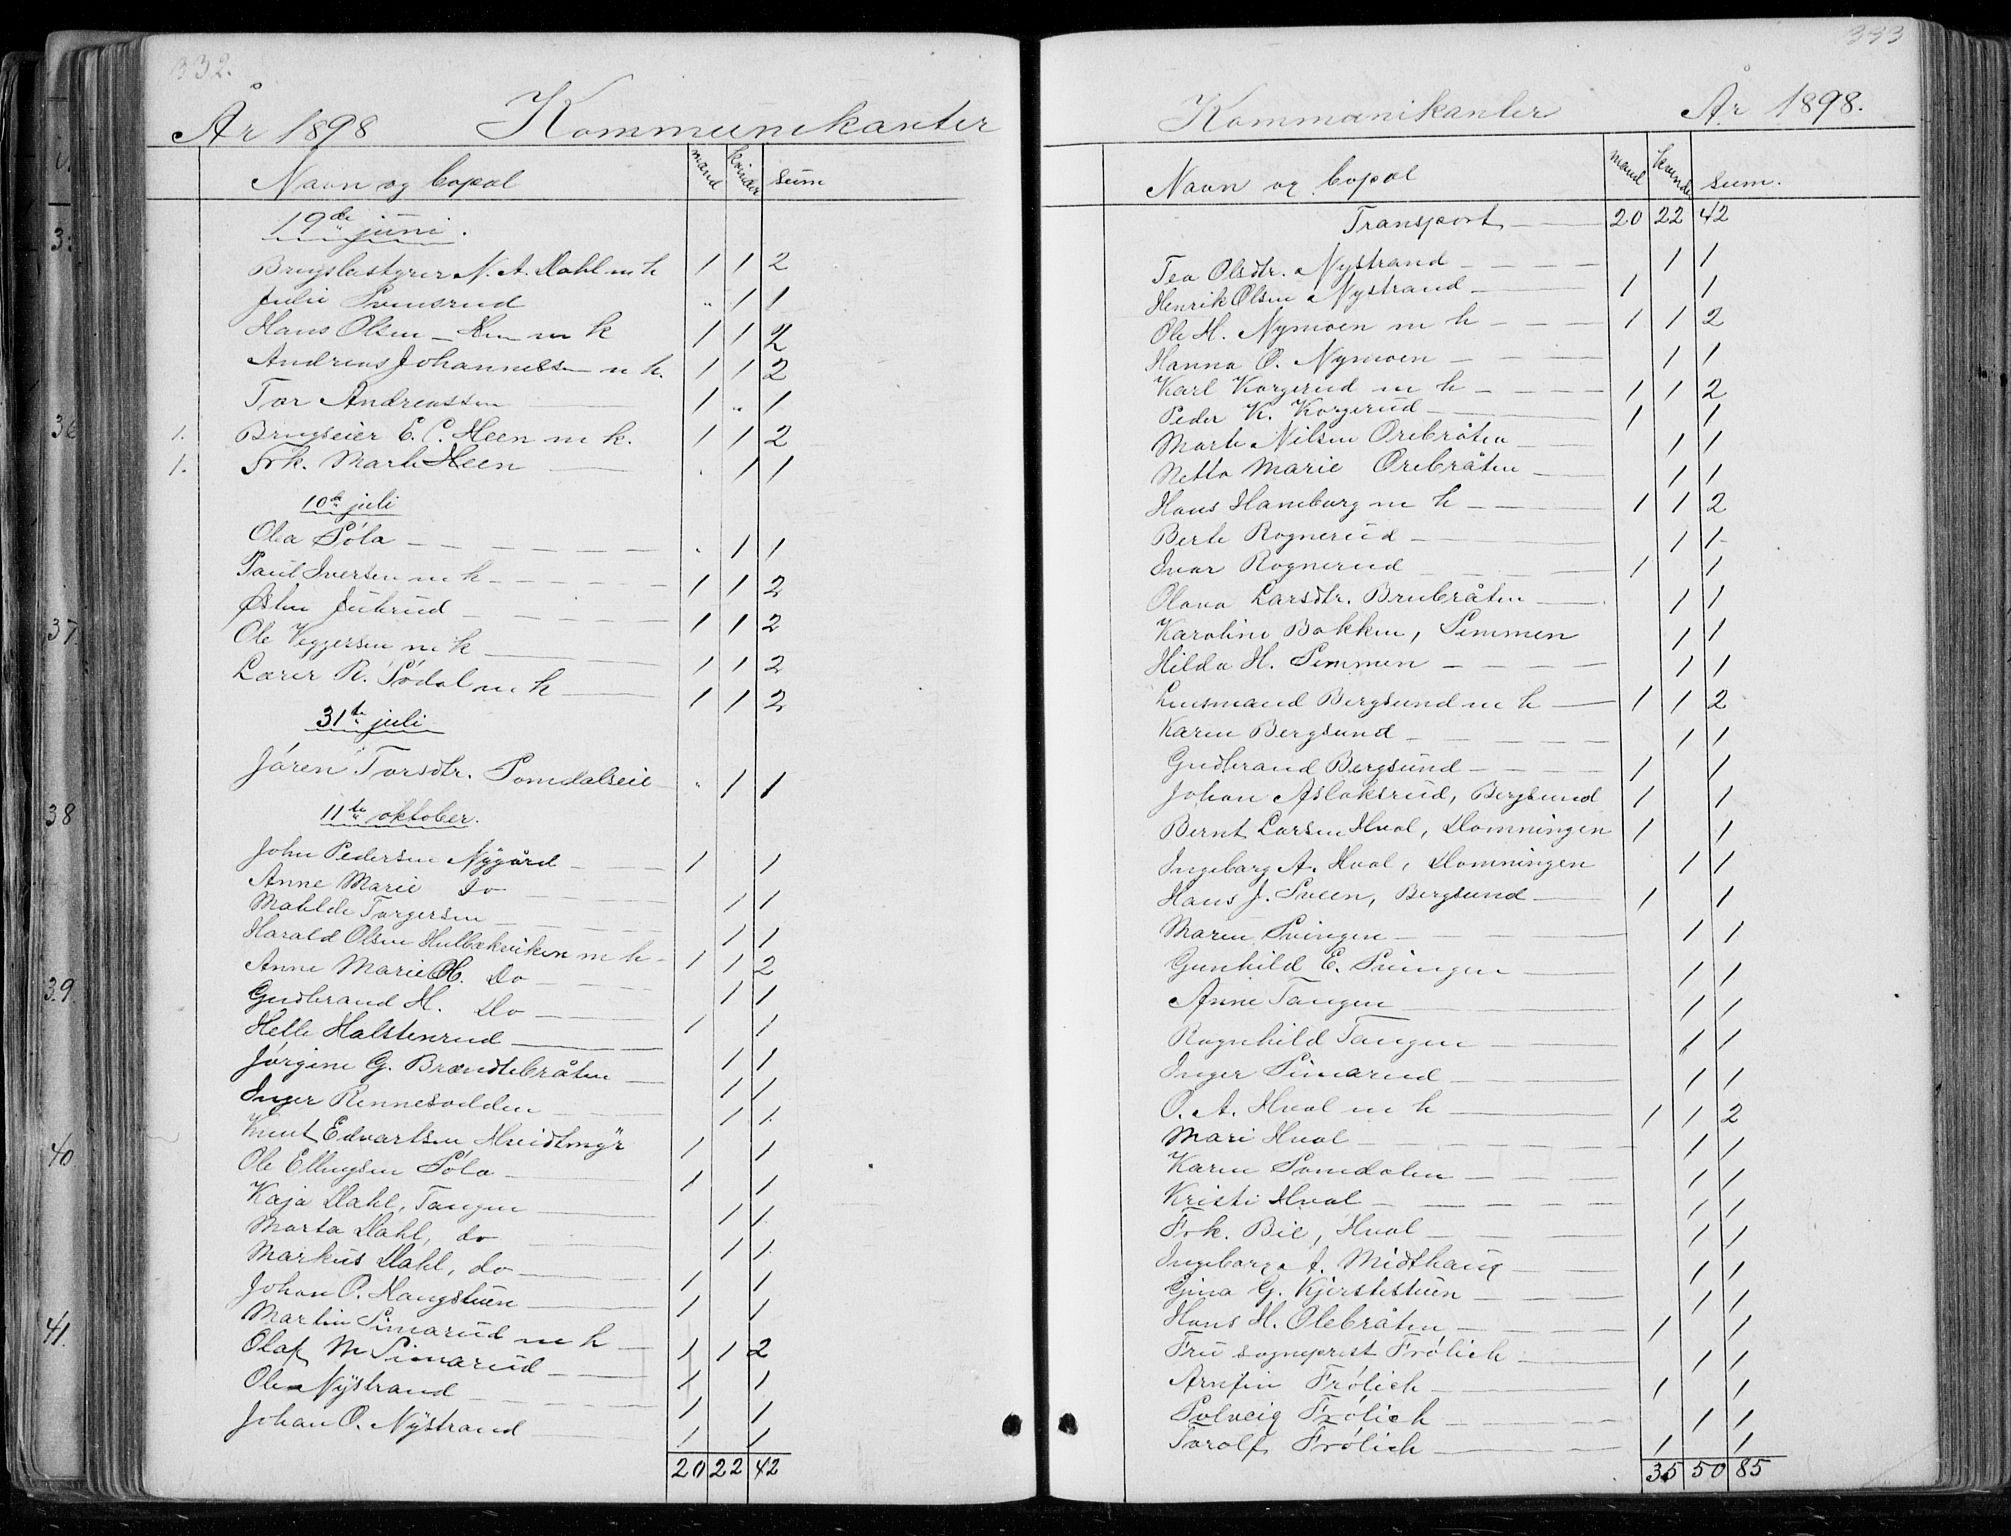 332.
År 1898 Kommunikanter
Navn og Bopæl mand kvinder sum
19de juni.
Brugsbestyrer N. A. Dahl m h 1 1 2
Julie Svensrud " 1 1
Hans Olsen Heen m h 1 1 2
Andreas Johannessen m h. 1 1 2
Tor Andreassen 1 " 1
1. Brugseier E. C. Heen m h. 1 1 2
1. Frk. Marte Heen " 1 1
10de juli
Olea Póla " 1 1
Paul Iversen m h 1 1 2
Juterud 1 1 2
Ole Veggersen m h 1 1 2
Lærer R. Södal m h 1 1 2
31te juli
Jören Torsdtr. Somdalseie " 1 1
11te oktober.
John Pedersen Nygård 1 1
Anne Marie Do 1 1
Mathilde Torgersen 1 1
Harald Olsen Hulbækviken m h 1 1 2
Anne Marie H. Do 1 1
Gudbrand H. Do 1 1
Helle Halstenrud 1 1
Jörgine G. Brændtebråten 1 1
Inger Rennesodden 1 1
Knut Edvartsen Hvidtmyr 1 1
Ole Ellingsen Póla 1 1
Kaja Dahl, Tangen 1 1
Marta Dahl, do 1 1
Markus Dahl, do 1 1
Johan O. Haugstuen 1 1
Martin Simarud m h 1 1 2
Olaf M Simarud 1 1
Ole Nystrand 1 1
Johan O. Nystrand 1 1
20 22 42
333
Kommunikanter År 1898.
Navn og Bopæl mand kvinde sum.
Transport 20 22 42
Tea Olsdtr. Nystrand 1 1
Henrik Olsen Nystrand 1 1
Ole H. Nymoen m h 1 1 2
Hanna O. Nymoen 1 1
Karl Korgerud m h 1 1 2
Peder K. Korgerud 1 1
Marte Nilsen Orebråten 1 1
Netta Marie Orebråten 1 1
Hans Haneborg m h 1 1 2
Berte Rognerud 1 1
Ivar Rognerud 1 1
Olava Larsdtr. Brubråten 1 1
Karoline Bakken, Semmen 1 1
Hilda H. Semmen 1 1
Lensmand Bergsund m h 1 1 2
Karen Bergsund 1 1
Gudbrand Bergsund 1 1
Johan Aslaksrud, Bergsund 1 1
Bernt Larsen Hval, Domningen 1 1
Ingeborg A. Hval, Domningen 1 1
Hans J. Sveen, Bergsund 1 1
Maren Svingen 1 1
Gunhild E. Svingen 1 1
Anne Tangen 1 1
Ragnhild Tangen 1 1
Inger Simarud 1 1
O. A. Hval m h 1 1 2
Mari Hval 1 1
Karen Somdalen 1 1
Kristi Hval 1 1
Frk. Bie, Hval 1 1
Ingeborg A. Midthaug 1 1
Gina G. Kjerstistuen 1 1
Hans H. Olebråten 1 1
Fru sogneprest Frólich 1 1
Arnfin Frólich 1 1
Solveig Frólich 1 1
Torolf Frólich 1 1
35 50 85
36
37.
38
39.
40
41.